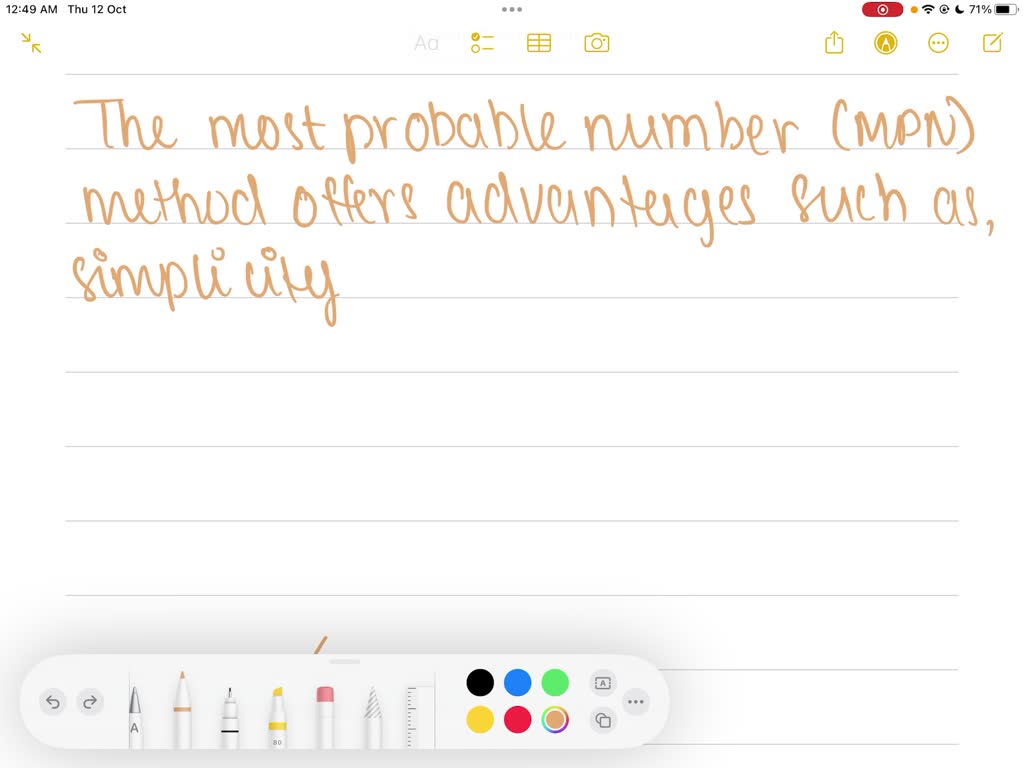 12:49 AM Thu 12 Oct
71%
Aa
The most probable number (MPN)
method offers advantages such as,
simplicity
A
80
A